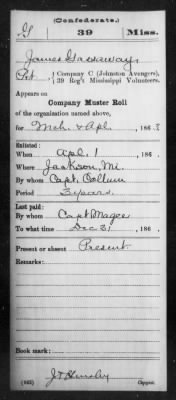 (Confederate.)
G 39 Miss.
James Gallaway
Pvt., Company C (Johnston Avengers), 39 Reg't Mississippi Volunteers.
Appears on
Company Muster Roll
of the organization named above,
for Mch. & Apl., 1863
Enlisted:
When Apl. 1, 186 .
Where Jackson, Mi.
By whom Capt. Collum
Period 3 years.
Last paid:
By whom Capt Magee
To what time Dec 31, 186 .
Present or absent Present.
Remarks:
Book mark:
(642) Copyist.